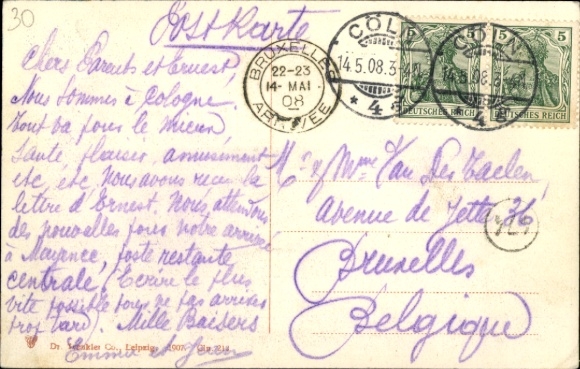 30
Postkarte
Chers Parents et Ernest,
Nous sommes à Cologne.
Tout va pour le mieux
Santé, plaisir, amusement
etc, etc. Nous avons recu la
lettre d'Ernest. Nous attendons
des nouvelles pour notre arrivée
à Mayence, poste restante
centrale. (Ecrire le plus
vite possible pour ne pas arriver
trop tard). Mille Baisers
Emma et
BRUXELLES
22-23
14- MAI
08
ARRIVEE
CÖLN
14.5.08.3
* 4
CÖLN
14.5.08.3
* 4
5
5 5
DEUTSCHES REICH
DEUTSCHES REICH
Mr & Mme Van Der Taelen
Avenue de Jette 36
Bruxelles
Belgique
Dr. Trenkler Co., Leipzig. 1907.